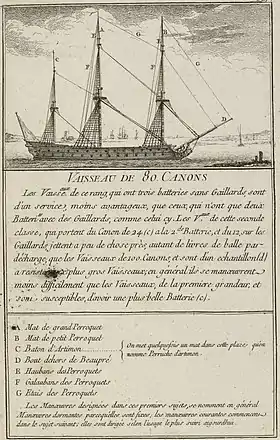 VAISSEAU DE 80. CANONS
Les Vaiss.aux de ce rang, qui ont trois batteries sans Gaillards, sont
d'un service, moins avantageux, que ceux, qui n'ont que deux
Batteries avec des Gaillards, comme celui cy. Les V.aux de cette seconde
classe, qui portent du Canon de 24 (c) a la 2.de Battrie, et du 12, sur les
Gaillards jettent a peu de chose près, autant de livres de balle par
décharge, que les Vaisseaux de 100. Canons; et sont d'un échantillon (d)
a resister aux plus gros Vaisseaux; en général ils se manœuvrent
moins difficilement que les Vaisseaux, de la premiere grandeur, et
sont susceptibles, d'avoir une plus belle Batterie (e).
A Mat de grand Perroquet
B Mat de petit Perroquet
C Baton d'Artimon
D Bout dehors de Beaupré
E Haubans des Perroquets
F Galaubans des Perroquets
G Etais des Perroquets
On met quelquefois un mat dans cette place qu'on
nomme Perruche d'artimon.
Les Manœuvres designées dans ces premiers sujets, se nomment en général
Manœuvres dormantes parcequ'elles sont fixes; les manœuvres courantes commencent
dans le sujet suivant; elles sont dirigées selon l'usage le plus suivi aujourd'hui.